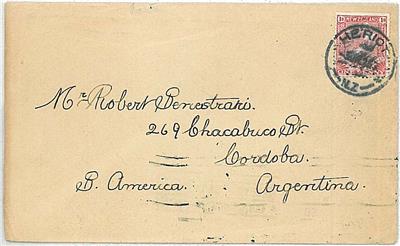 1d NEW ZEALAND 1d
HERIOT
N.Z.
Mr Robert Penestrari.
269 Chacabuco St.
Cordoba.
S. America. Argentina.